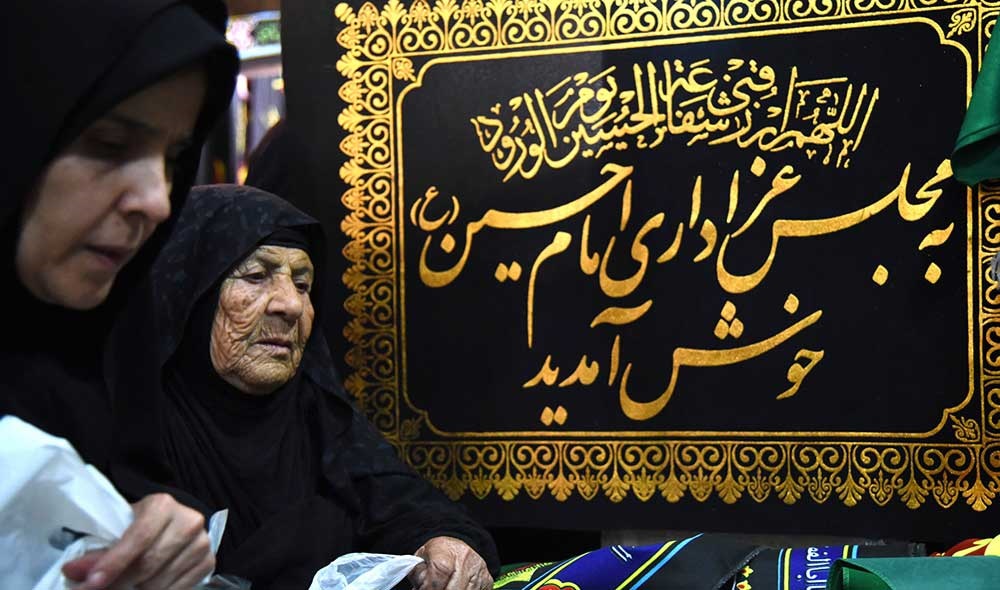 اللهم ارزقنی شفاعة الحسین یوم الورود
به مجلس عزاداری امام حسین (ع)
خوش آمدید